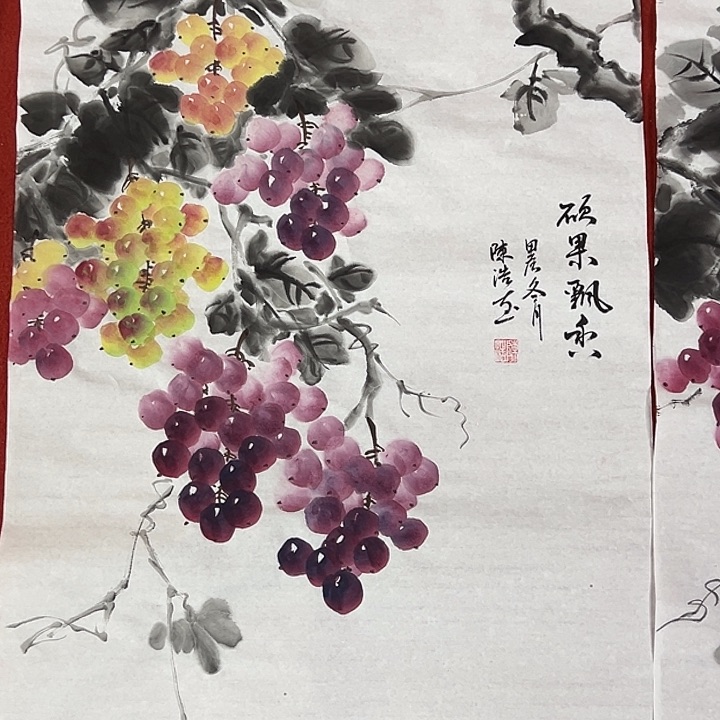 硕果飘香
冬月
陈浩画